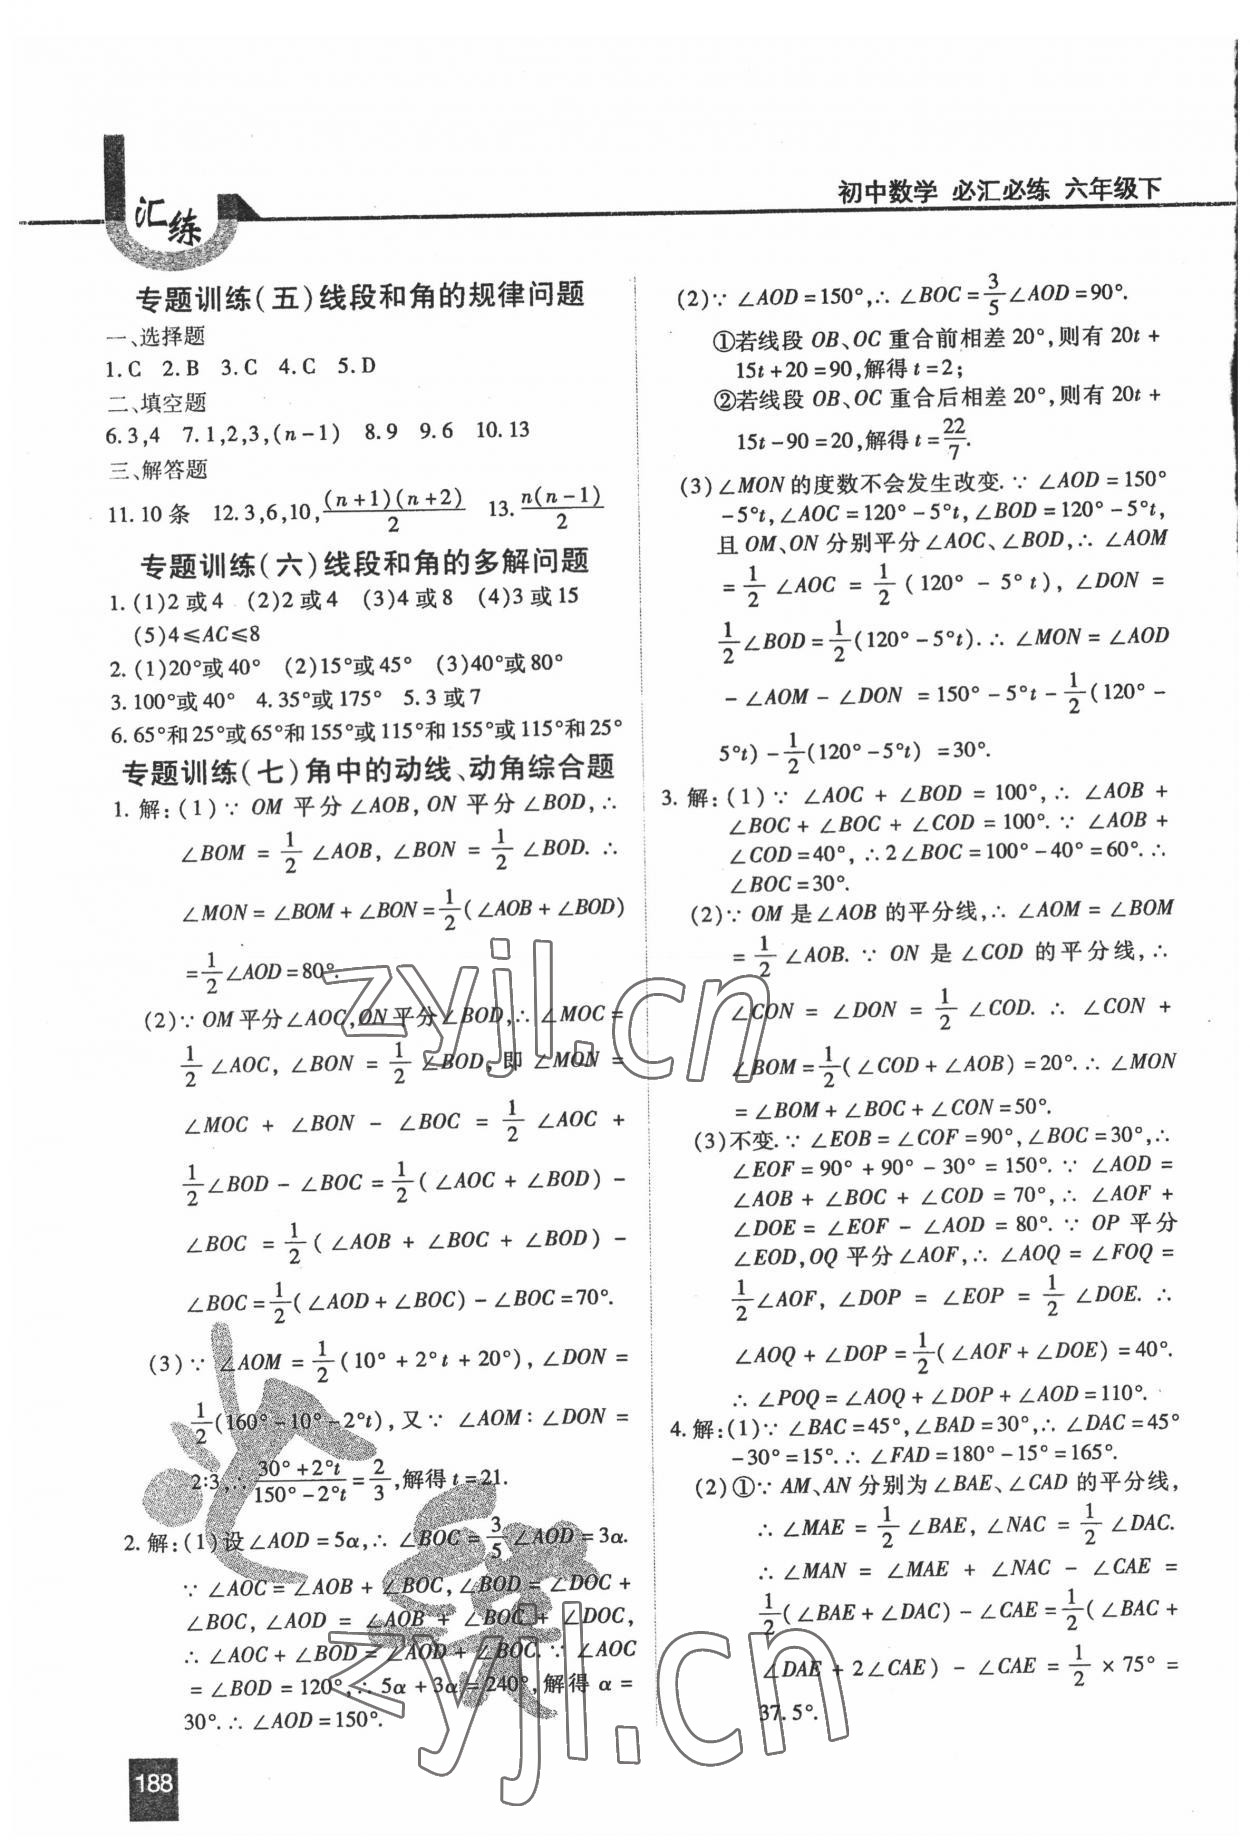 汇练
初中数学 必汇必练 六年级下
专题训练(五)线段和角的规律问题
一、选择题
1.C 2.B 3.C 4.C 5.D
二、填空题
6.3,4 7.1,2,3,(n-1) 8.9 9.6 10.13
三、解答题
11.10条 12.3,6,10,(n+1)(n+2)/2 13.n(n-1)/2
专题训练(六)线段和角的多解问题
1.(1)2或4 (2)2或4 (3)4或8 (4)3或15
(5)4≤AC≤8
2.(1)20°或40° (2)15°或45° (3)40°或80°
3.100°或40° 4.35°或175° 5.3或7
6.65°和25°或65°和155°或115°和155°或115°和25°
专题训练(七)角中的动线、动角综合题
1.解:(1)∵ OM 平分∠AOB,ON 平分∠BOD,∴
∠BOM = 1/2 ∠AOB, ∠BON = 1/2 ∠BOD. ∴
∠MON = ∠BOM + ∠BON = 1/2(∠AOB + ∠BOD)
= 1/2∠AOD = 80°.
(2)∵ OM平分∠AOC,ON平分∠BOD,∴ ∠MOC =
1/2 ∠AOC, ∠BON = 1/2 ∠BOD, 即 ∠MON =
∠MOC + ∠BON - ∠BOC = 1/2 ∠AOC +
1/2∠BOD - ∠BOC = 1/2(∠AOC + ∠BOD) -
∠BOC = 1/2(∠AOB + ∠BOC + ∠BOD) -
∠BOC = 1/2(∠AOD + ∠BOC) - ∠BOC = 70°.
(3)∵ ∠AOM = 1/2(10° + 2°t + 20°), ∠DON =
1/2(160° - 10° - 2°t), 又∵ ∠AOM : ∠DON =
2:3, ∴ (30° + 2°t)/(150° - 2°t) = 2/3, 解得 t = 21.
2.解:(1)设∠AOD = 5α,∴ ∠BOC = 3/5∠AOD = 3α.
∵ ∠AOC = ∠AOB + ∠BOC, ∠BOD = ∠DOC +
∠BOC, ∠AOD = ∠AOB + ∠BOC + ∠DOC,
∴ ∠AOC + ∠BOD = ∠AOD + ∠BOC. ∵ ∠AOC
= ∠BOD = 120°, ∴ 5α + 3α = 240°, 解得 α =
30°. ∴ ∠AOD = 150°.
188
(2)∵ ∠AOD = 150°,∴ ∠BOC = 3/5∠AOD = 90°.
①若线段 OB、OC 重合前相差 20°,则有 20t +
15t + 20 = 90,解得 t = 2;
②若线段 OB、OC 重合后相差 20°,则有 20t +
15t - 90 = 20,解得 t = 22/7.
(3)∠MON 的度数不会发生改变. ∵ ∠AOD = 150°
- 5°t,∠AOC = 120° - 5°t,∠BOD = 120° - 5°t,
且 OM、ON 分别平分∠AOC、∠BOD,∴ ∠AOM
= 1/2 ∠AOC = 1/2 (120° - 5°t), ∠DON =
1/2∠BOD = 1/2(120° - 5°t). ∴ ∠MON = ∠AOD
- ∠AOM - ∠DON = 150° - 5°t - 1/2(120° -
5°t) - 1/2(120° - 5°t) = 30°.
3.解:(1)∵ ∠AOC + ∠BOD = 100°,∴ ∠AOB +
∠BOC + ∠BOC + ∠COD = 100°. ∵ ∠AOB +
∠COD = 40°, ∴ 2∠BOC = 100° - 40° = 60°. ∴
∠BOC = 30°.
(2)∵ OM 是∠AOB 的平分线,∴ ∠AOM = ∠BOM
= 1/2 ∠AOB. ∵ ON 是 ∠COD 的平分线, ∴
∠CON = ∠DON = 1/2 ∠COD. ∴ ∠CON +
∠BOM = 1/2(∠COD + ∠AOB) = 20°. ∴ ∠MON
= ∠BOM + ∠BOC + ∠CON = 50°.
(3)不变. ∵ ∠EOB = ∠COF = 90°,∠BOC = 30°,∴
∠EOF = 90° + 90° - 30° = 150°. ∵ ∠AOD =
∠AOB + ∠BOC + ∠COD = 70°,∴ ∠AOF +
∠DOE = ∠EOF - ∠AOD = 80°. ∵ OP 平分
∠EOD,OQ 平分∠AOF,∴ ∠AOQ = ∠FOQ =
1/2∠AOF, ∠DOP = ∠EOP = 1/2 ∠DOE. ∴
∠AOQ + ∠DOP = 1/2(∠AOF + ∠DOE) = 40°.
∴ ∠POQ = ∠AOQ + ∠DOP + ∠AOD = 110°.
4.解:(1)∵ ∠BAC = 45°,∠BAD = 30°,∴ ∠DAC = 45°
- 30° = 15°. ∴ ∠FAD = 180° - 15° = 165°.
(2)①∵ AM、AN 分别为∠BAE、∠CAD 的平分线,
∴ ∠MAE = 1/2 ∠BAE, ∠NAC = 1/2 ∠DAC.
∴ ∠MAN = ∠MAE + ∠NAC - ∠CAE =
1/2(∠BAE + ∠DAC) - ∠CAE = 1/2(∠BAC +
∠DAE + 2∠CAE) - ∠CAE = 1/2 × 75° =
37.5°.
zyjl.cn
zyjl.cn